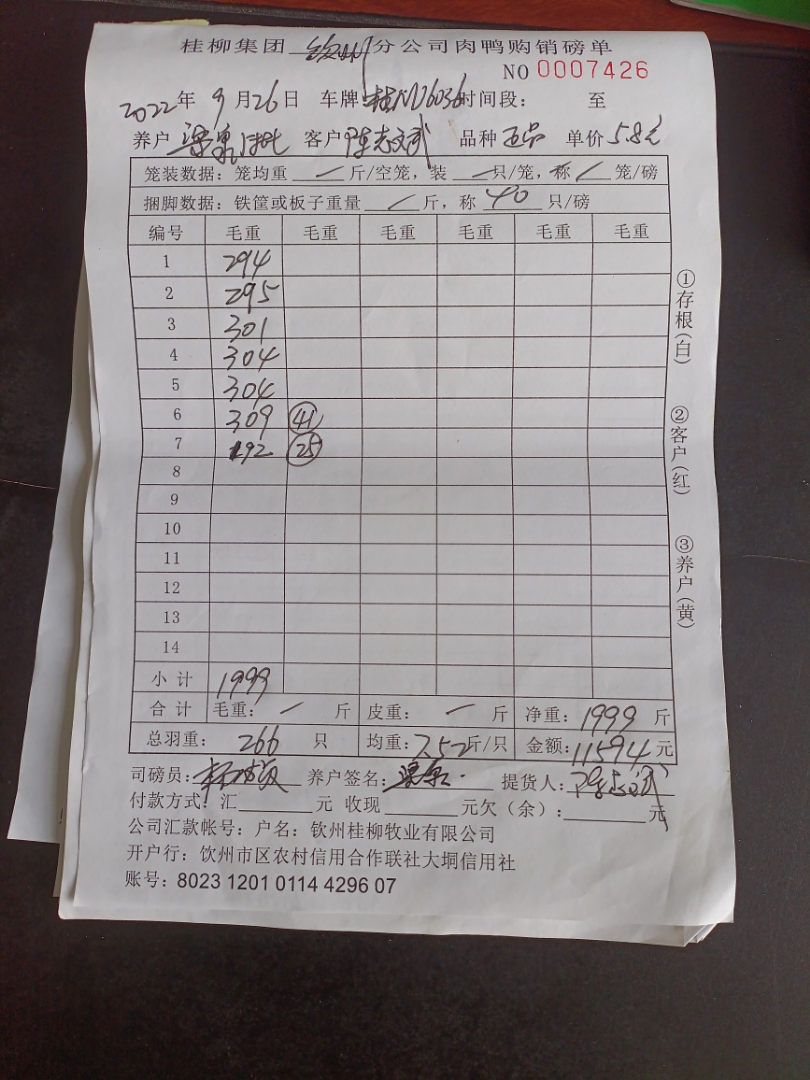 桂柳集团 钦州 分公司肉鸭购销磅单
NO 0007426
2022年 9月26日 车牌 桂N06036 时间段: 至
养户 客户 陈志文武 品种 单价 5.8元
笼装数据:笼均重 / 斤/空笼,装 / 只/笼,称 / 笼/磅
捆脚数据:铁筐或板子重量 / 斤,称 40 只/磅
编号 毛重 毛重 毛重 毛重 毛重 毛重
1 294
2 295
3 301
4 304
5 304
6 309 41
7 192 25
8
9
10
11
12
13
14
小计 1999
合计 毛重: / 斤 皮重: / 斤 净重: 1999 斤
总羽重: 266 只 均重: 7.52 斤/只 金额: 11594 元
司磅员: 养户签名: 提货人:
付款方式:汇 元 收现 元欠(余): 元
公司汇款帐号:户名:钦州桂柳牧业有限公司
开户行:饮州市区农村信用合作联社大垌信用社
账号:8023 1201 0114 4296 07
①存根(白)
②客户(红)
③养户(黄)